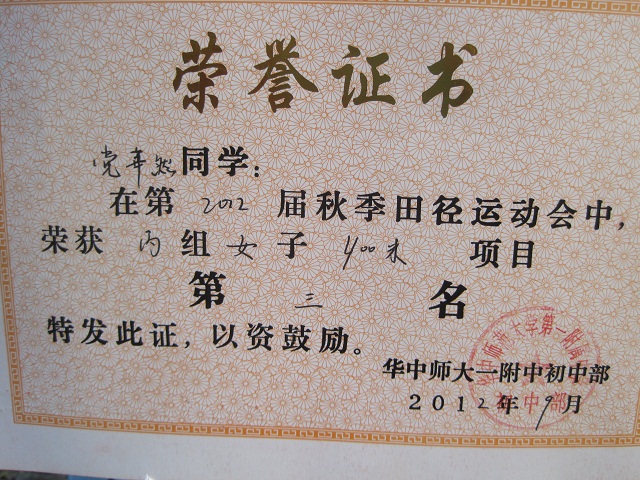 荣誉证书
党苹然同学：
在第2012届秋季田径运动会中，
荣获 内 组 女 子 400米 项目
第 三 名
特发此证，以资鼓励。
华中师大一附中初中部
2012年9月